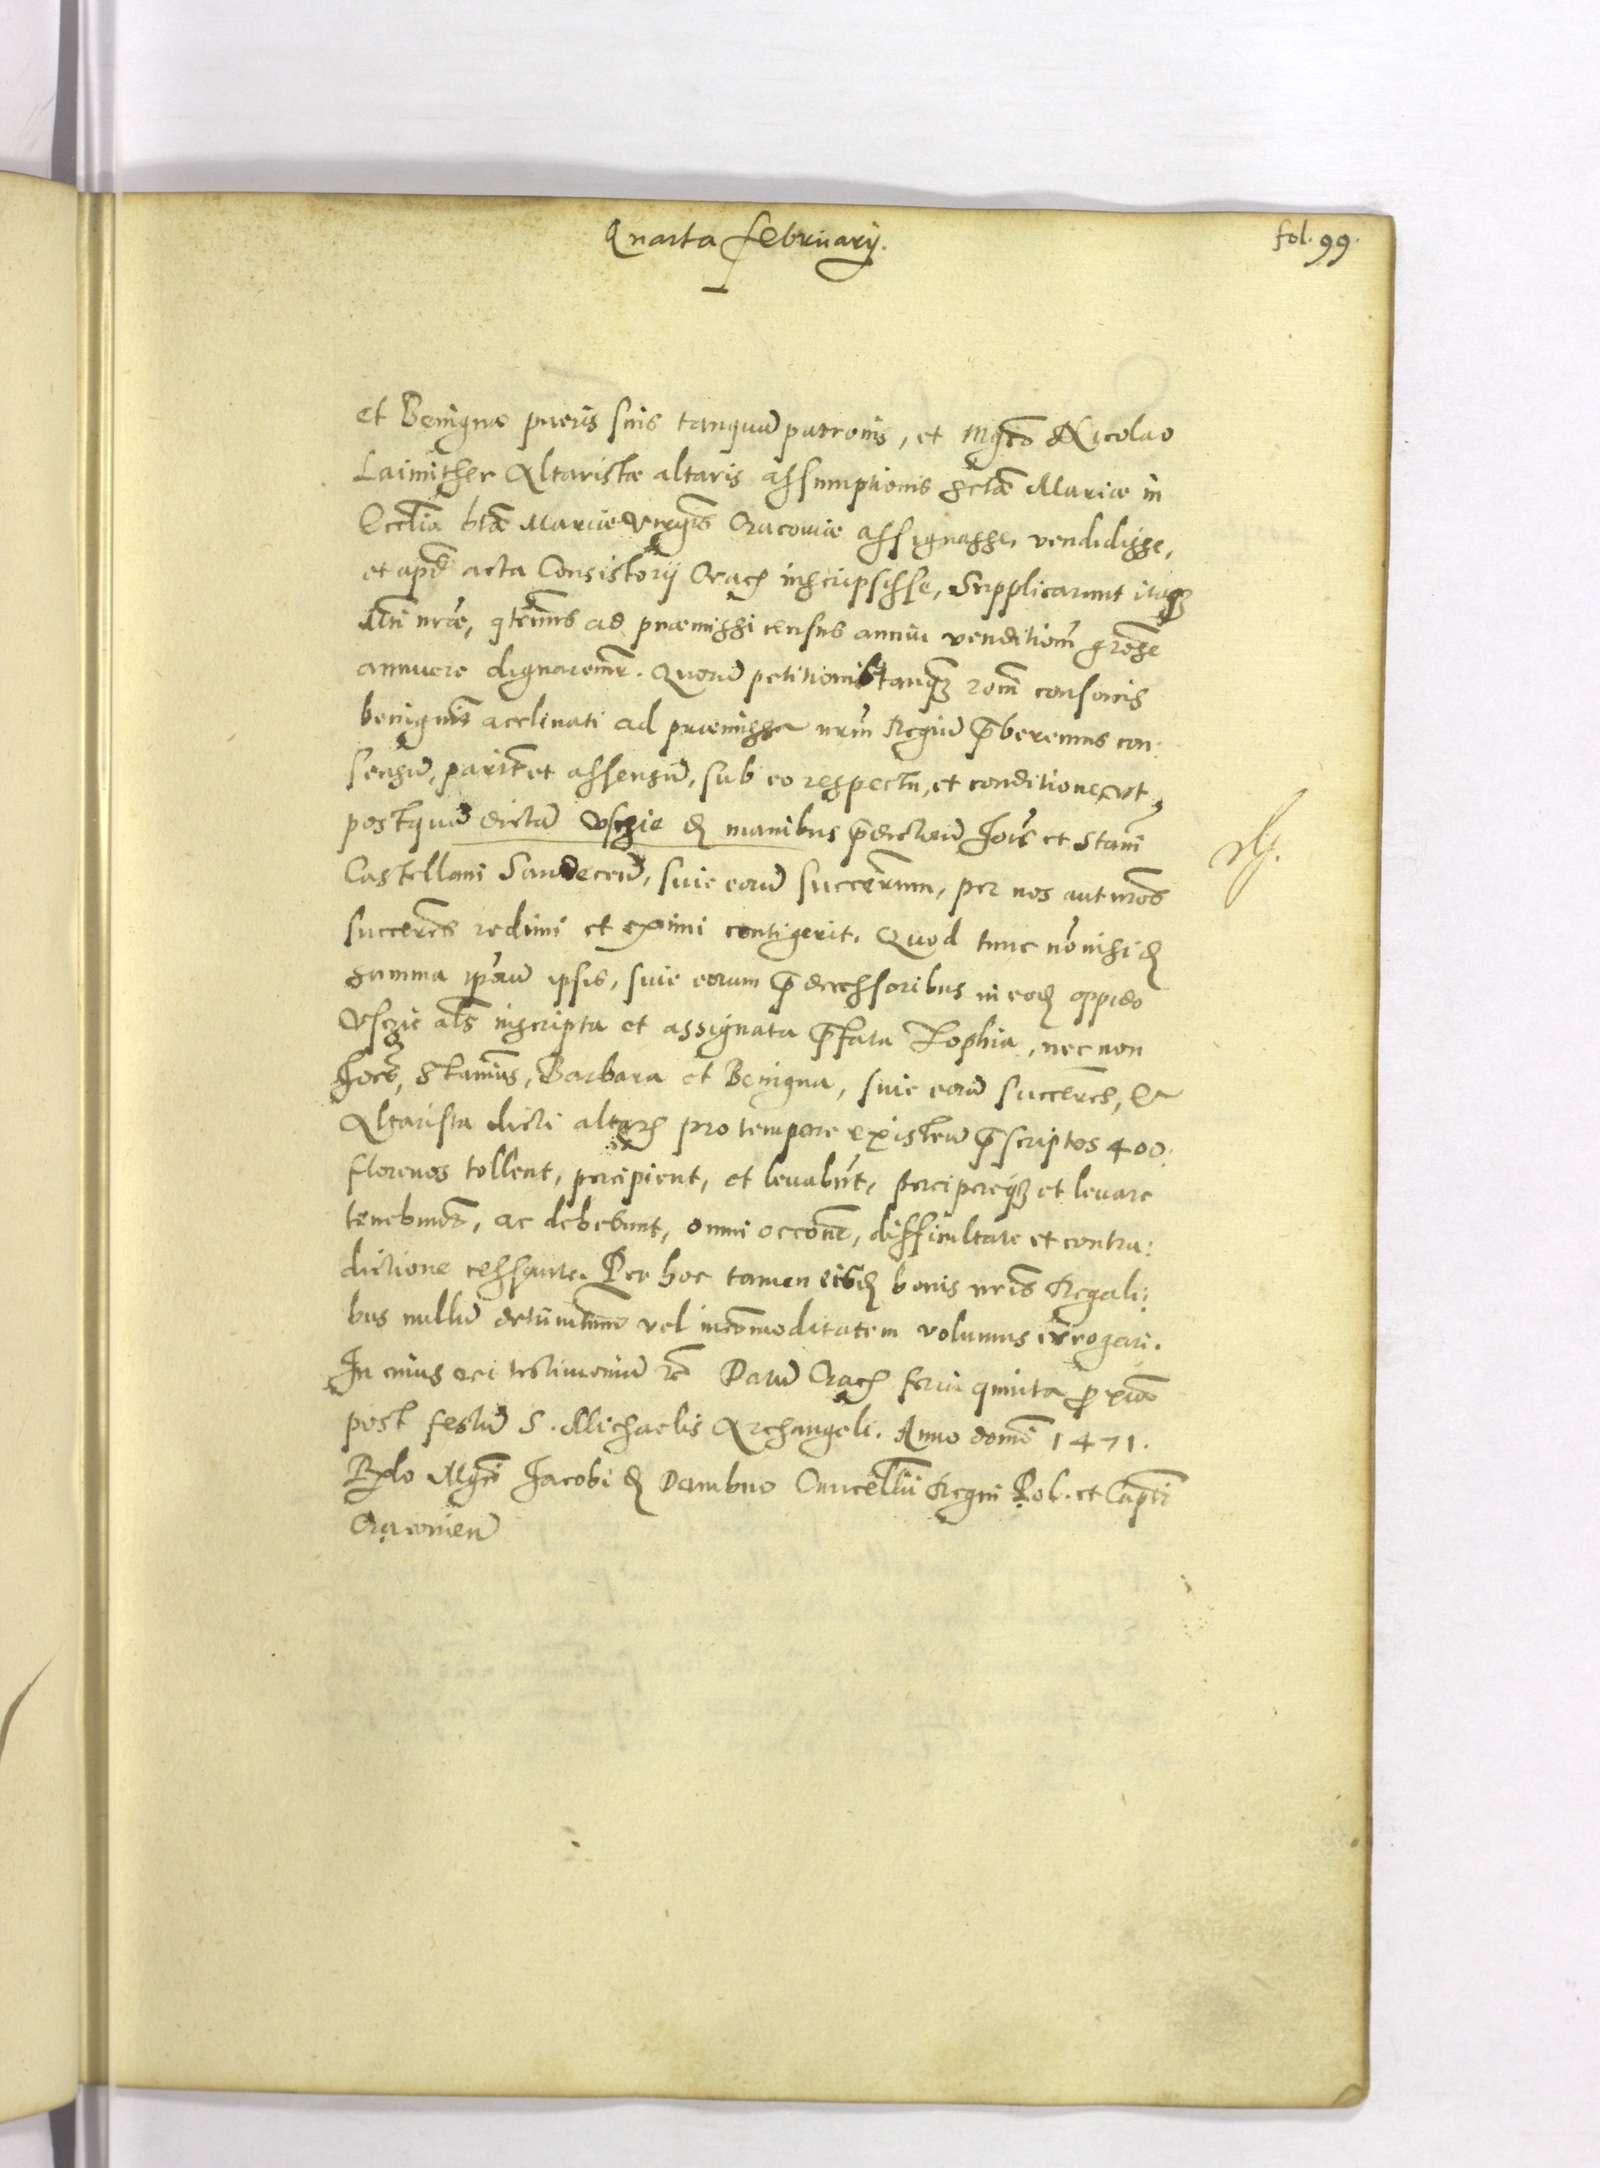 Quarta februarij.
fol. 99.
et Benignæ pueris suis tanquā patronis, et Mgco Nicolao
Laimither Altaristæ altaris assumptionis sctæ Mariæ in
Eccliā btæ Mariæ Virgīs Cracoviæ assignasse, vendidisse,
et apd acta Consistorij Crac inscripsisse, Supplicarunt itaqȝ
Mti nræ, qtenus ad præmissi census annui venditiom grose
annuere dignaremr. Quorū petitionib tanqȝ rom consonis
benignīt acclinati ad præmissa nrm Regiū p̄beremus con
sensū, parit et assensū, sub eo respectu, et conditione, vt
postquā dictū Vsczie d manibus p̄dictorū Jois et Stani
Castellani Sandeceñ, siue eorū succerum, per nos aut nros
succeres redimi et eximi contigerit. Quod tunc no nisi d
summa ipārū ipsis, siue eorum p̄decessoribus in eod oppido
Vsczie als inscripta et assignata p̄fata Zophia, nec non
Joes, Stanius, Barbara et Benigna, siue eorū succeres, et
Altarista dicti altaris pro tempore existeñ p̄scriptos 400
florenos tollent, percipient, et levabūt, percipereqȝ et levare
tenebunt, ac debebunt, omni occone, difficultate et contra:
dictione cessante. Per hoc tamen eisd bonis nris Regali:
bus nullū detrimentum vel incōmoditatem volumus irrogari.
In cuius rei testimoniū &c Datū Crac feria quinta proxima
post festū S. Michaelis Archangeli. Anno domī 1471.
Rlo Mgci Jacobi d Dambno Cancellii Regni Pol. et Capti
Cracovieñ